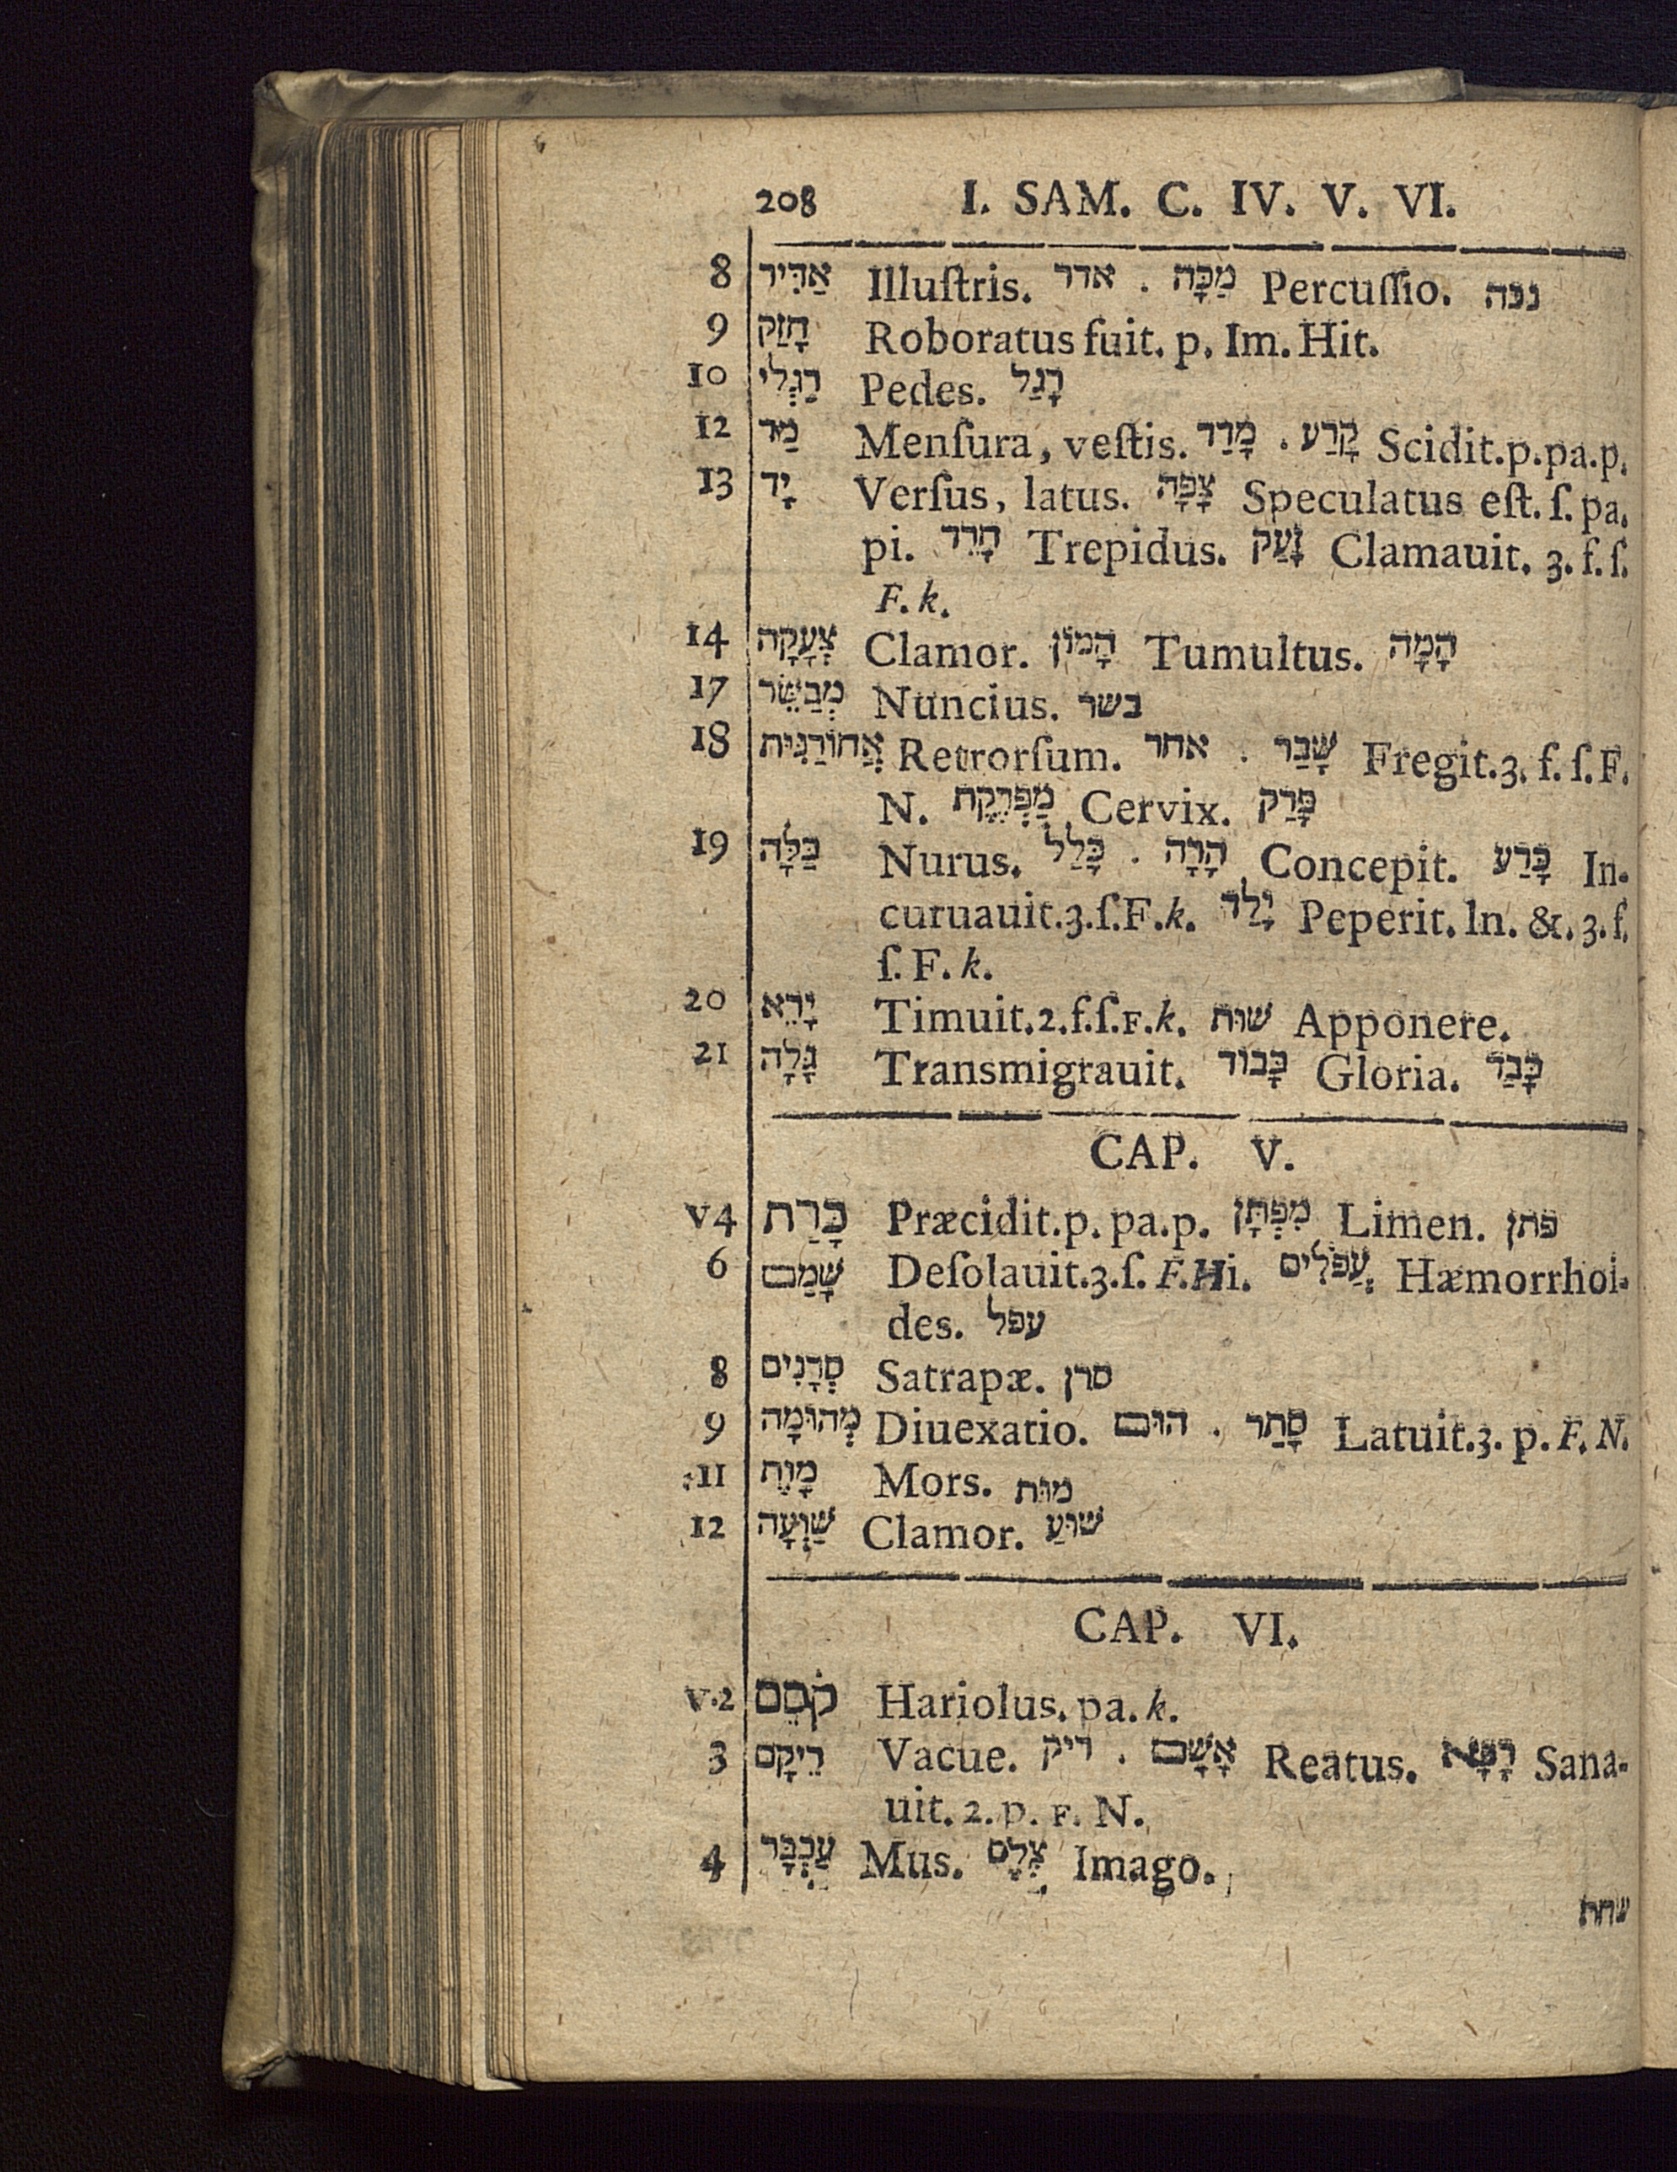 208 I. SAM. C. IV. V. VI.
8 אַדִּיר Illuſtris. אדר . מַכָּה Percuſſio. נכה
9 חָזַק Roboratus fuit. p. Im. Hit.
10 רַגְלִי Pedes. רָגַל
12 מַד Menſura, veſtis. מָדַד . קָרַע Scidit.p.pa.p.
13 יָד Verſus, latus. צָפָה Speculatus eſt. ſ. pa.
pi. חָרֵד Trepidus. זָעַק Clamauit. 3. f. ſ.
F. k.
14 צְעָקָה Clamor. הָמוֹן Tumultus. הָמָה
17 מְבַשֵּׂר Nuncius. בשר
18 אֲחוֹרַנִּית Retrorſum. אחר . שָׁבַר Fregit.3. f. ſ. F.
N. מַפְרֶקֶת Cervix. פָּרַק
19 כַּלָּה Nurus. כָּלַל . הָרָה Concepit. כָּרַע In-
curuauit.3.ſ.F.k. יָלַד Peperit. In. &. 3. f.
ſ. F. k.
20 יָרֵא Timuit.2.f.ſ.F.k. שׁוּת Apponere.
21 גָּלָה Transmigrauit. כָּבוֹד Gloria. כָּבַד
CAP. V.
v4 כָּרַת Præcidit.p. pa.p. מִפְתָּן Limen. פתן
6 שָׁמַם Deſolauit.3.ſ. F.Hi. עֲפֹלִים Hæmorrhoi-
des. עפל
8 סְרָנִים Satrapæ. סרן
9 מְהוּמָה Diuexatio. הוּם . סָתַר Latuit.3. p. F. N.
11 מָוֶת Mors. מוּת
12 שַׁוְעָה Clamor. שׁוּעַ
CAP. VI.
v.2 קֹסֵם Hariolus. pa. k.
3 רֵיקָם Vacue. ריק . אָשָׁם Reatus. רָפָא Sana-
uit. 2. p. F. N.
4 עַכְבָּר Mus. צֶלֶם Imago.
שחת